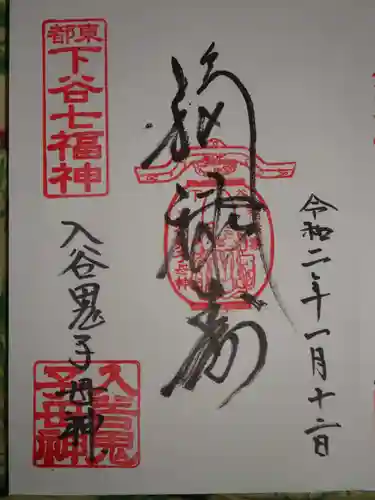 令和二年一月十二日
福禄寿
東都
下谷七福神
入谷鬼子母神
入谷鬼
子母神